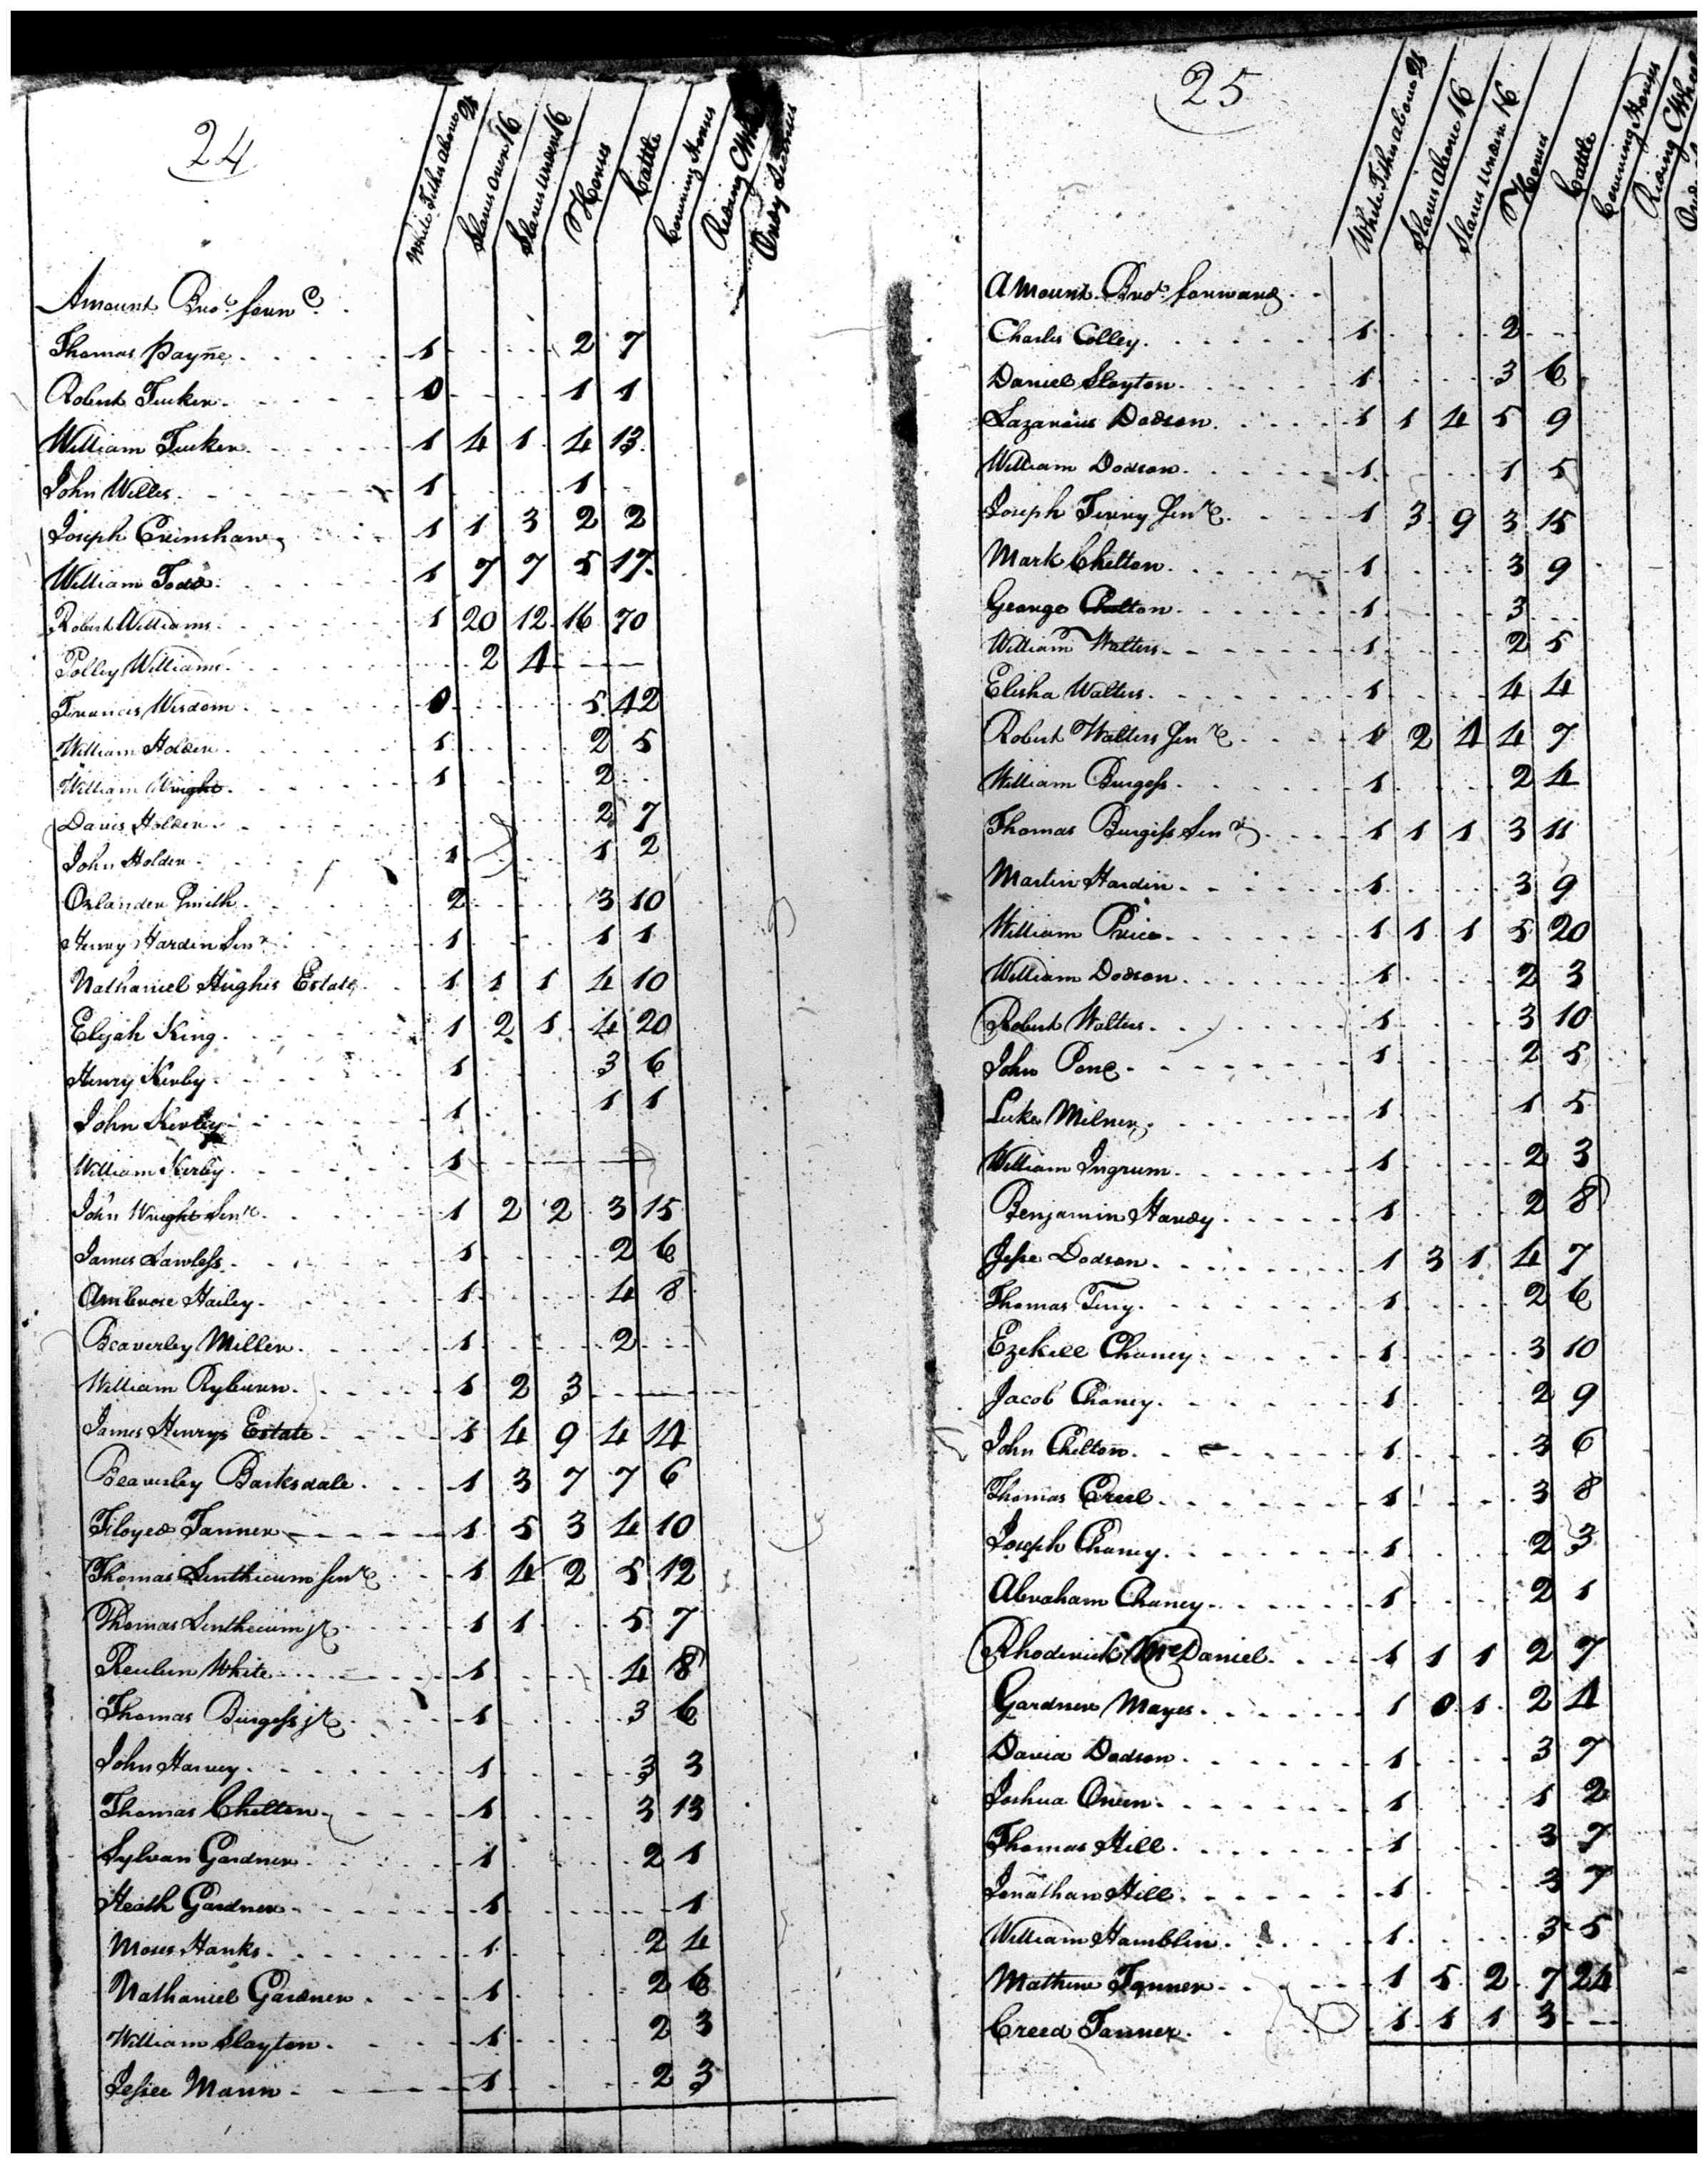 24
White Tithes above 21
Slaves over 16
Slaves under 16
Horses
Cattle
Covering Horses
Riding
Ordy License
Amount Bro.t forw.d
Thomas Payne 1 2 7
Robert Tucker 0 1 1
William Tucker 1 4 1 4 13
John Willis 1 1
Joseph Crinshaw 1 1 3 2 2
William Todd 1 7 7 5 17
Robert Williams 1 20 12 16 70
Polley Williams 2 4
Francis Wisdom 0 5 12
William Holder 1 2 5
William Wright 1 2
Davis Holder 2 7
John Holder 1 1 2
Orlander Smith 2 3 10
Henry Hardin Sen.r 1 1 1
Nathaniel Hughis Estate 1 1 1 4 10
Elijah King 1 2 1 4 20
Henry Kerby 1 3 6
John Kerby 1 1 1
William Kerby 1
John Wright Sen.r 1 2 2 3 15
James Lawless 1 2 6
Ambrose Hailey 1 4 8
Beaverley Miller 1 2
William Ryburn 1 2 3
James Henrys Estate 1 4 9 4 14
Beaverley Barksdale 1 3 7 7 6
Floyed Tanner 1 5 3 4 10
Thomas Linthicum Sen.r 1 4 2 5 12
Thomas Linthicum Jr 1 1 5 7
Reuben White 1 4 8
Thomas Burgess Jr 1 3 6
John Harvey 1 3 3
Thomas Chelton 1 3 13
Sylvan Gardner 1 2 1
Heath Gardner 1 1
Moses Hanks 1 2 4
Nathaniel Gardner 1 2 6
William Slayton 1 2 3
Jessee Mann 1 2 3
25
White Tithes above 21
Slaves above 16
Slaves under 16
Horses
Cattle
Covering Horses
Riding
Amount Bro.t forward
Charles Colley 1 2
Daniel Slayton 1 3 6
Lazarous Dodson 1 1 4 5 9
William Dodson 1 1 5
Joseph Terry Sen.r 1 3 9 3 15
Mark Chelton 1 3 9
George Chelton 1 3
William Walters 1 2 5
Elisha Walters 1 4 4
Robert Walters Sen.r 1 2 4 4 7
William Burgess 1 2 4
Thomas Burgess Sen.r 1 1 1 3 11
Martin Hardin 1 3 9
William Price 1 1 1 5 20
William Dodson 1 2 3
Robert Walters 1 3 10
John Pone 1 2 5
Luke Milner 1 1 5
William Ingrum 1 2 3
Benjamin Handy 1 2 8
Jesse Dodson 1 3 1 4 7
Thomas Terry 1 2 6
Ezekill Chaney 1 3 10
Jacob Chaney 1 2 9
John Chelton 1 3 6
Thomas Creel 1 3 8
Joseph Chaney 1 2 3
Abraham Chaney 1 2 1
Rhoderick McDaniel 1 1 1 2 7
Gardner Mayes 1 0 1 2 4
David Dodson 1 3 7
Joshua Owen 1 1 2
Thomas Hill 1 3 7
Jonathan Hill 1 3 7
William Hamblin 1 3 5
Mathew Tanner 1 5 2 7 24
Creed Tanner 1 1 1 3